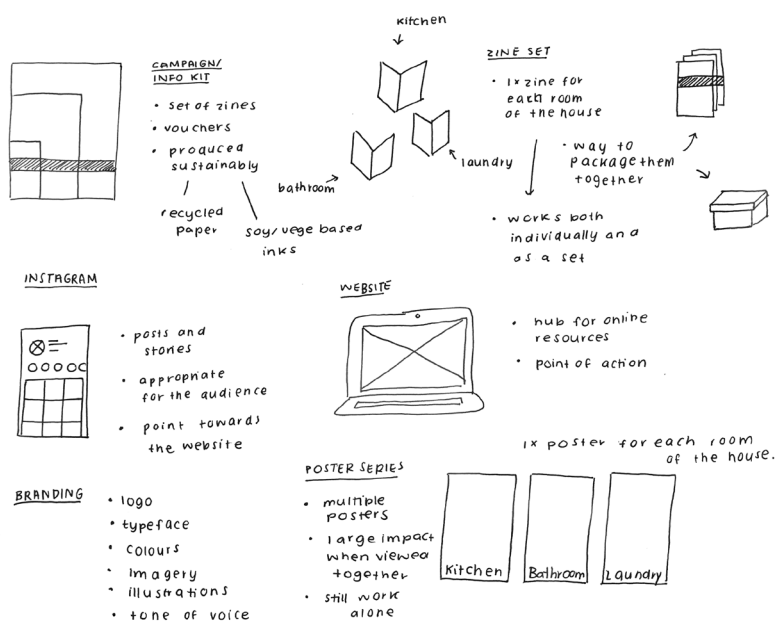 CAMPAIGN/
INFO KIT
• set of zines
• vouchers
• produced
sustainably
recycled
paper
soy/vege based
inks
kitchen
bathroom
laundry
ZINE SET
• 1x zine for
each room
of the house
• way to
package them
together
• works both
individually and
as a set
INSTAGRAM
• posts and
stories
• appropriate
for the audience
• point towards
the website
WEBSITE
• hub for online
resources
• point of action
BRANDING
• logo
• typeface
• colours
• Imagery
• illustrations
• tone of voice
POSTER SERIES
• multiple
posters
• large impact
when viewed
together
• still work
alone
1x poster for each room
of the house.
Kitchen
Bathroom
Laundry